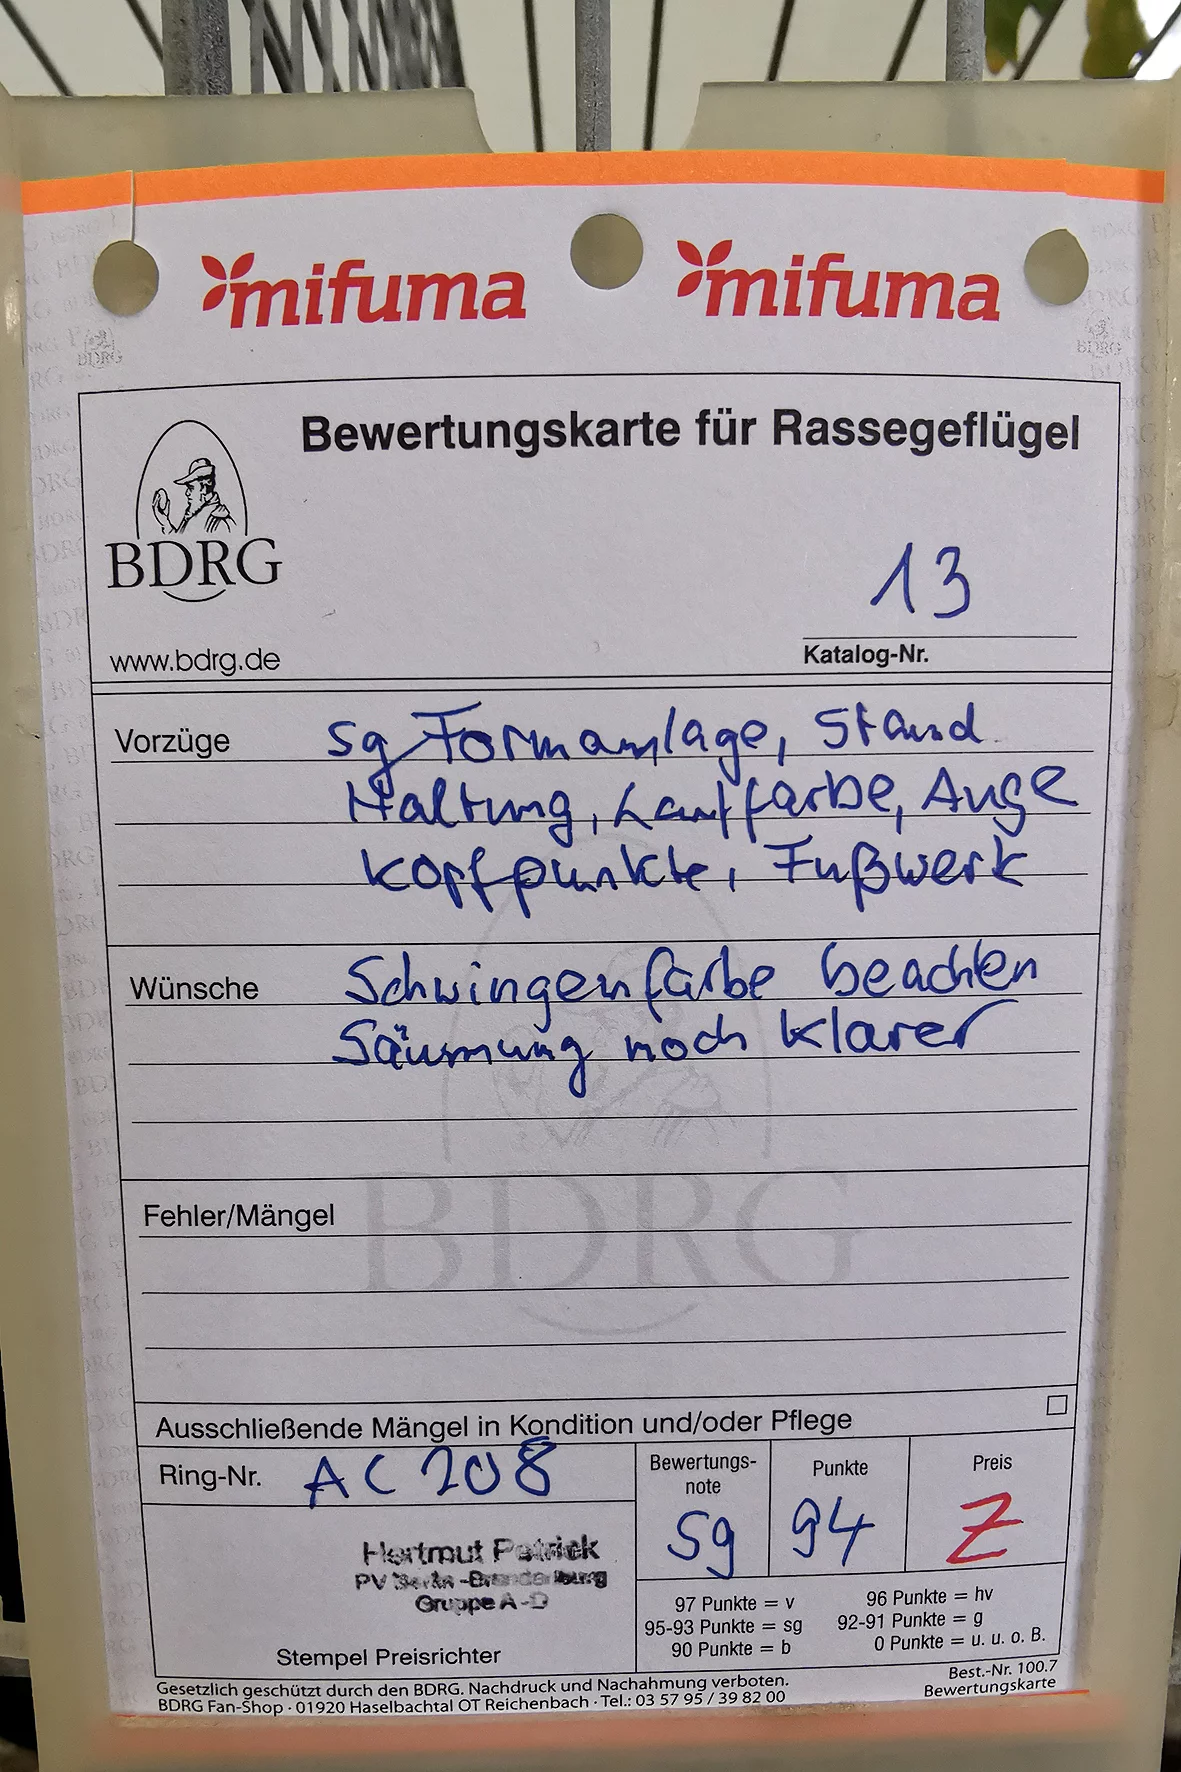 mifuma mifuma
Bewertungskarte für Rassegeflügel
BDRG
www.bdrg.de
13
Katalog-Nr.
Vorzüge sg Formanlage, Stand
Haltung, Lauffarbe, Auge
Kopfpunkte, Fußwerk
Wünsche Schwingenfarbe beachten
Säumung noch klarer
BDRG
Fehler/Mängel
Ausschließende Mängel in Kondition und/oder Pflege
Ring-Nr. AC 208
Bewertungs-
note
sg
Punkte
94
Preis
Z
Hartmut Patrick
PV Berlin-Brandenburg
Gruppe A-D
Stempel Preisrichter
97 Punkte = v 96 Punkte = hv
95-93 Punkte = sg 92-91 Punkte = g
90 Punkte = b 0 Punkte = u. u. o. B.
Gesetzlich geschützt durch den BDRG. Nachdruck und Nachahmung verboten.
BDRG Fan-Shop · 01920 Haselbachtal OT Reichenbach · Tel.: 03 57 95 / 39 82 00
Best.-Nr. 100.7
Bewertungskarte